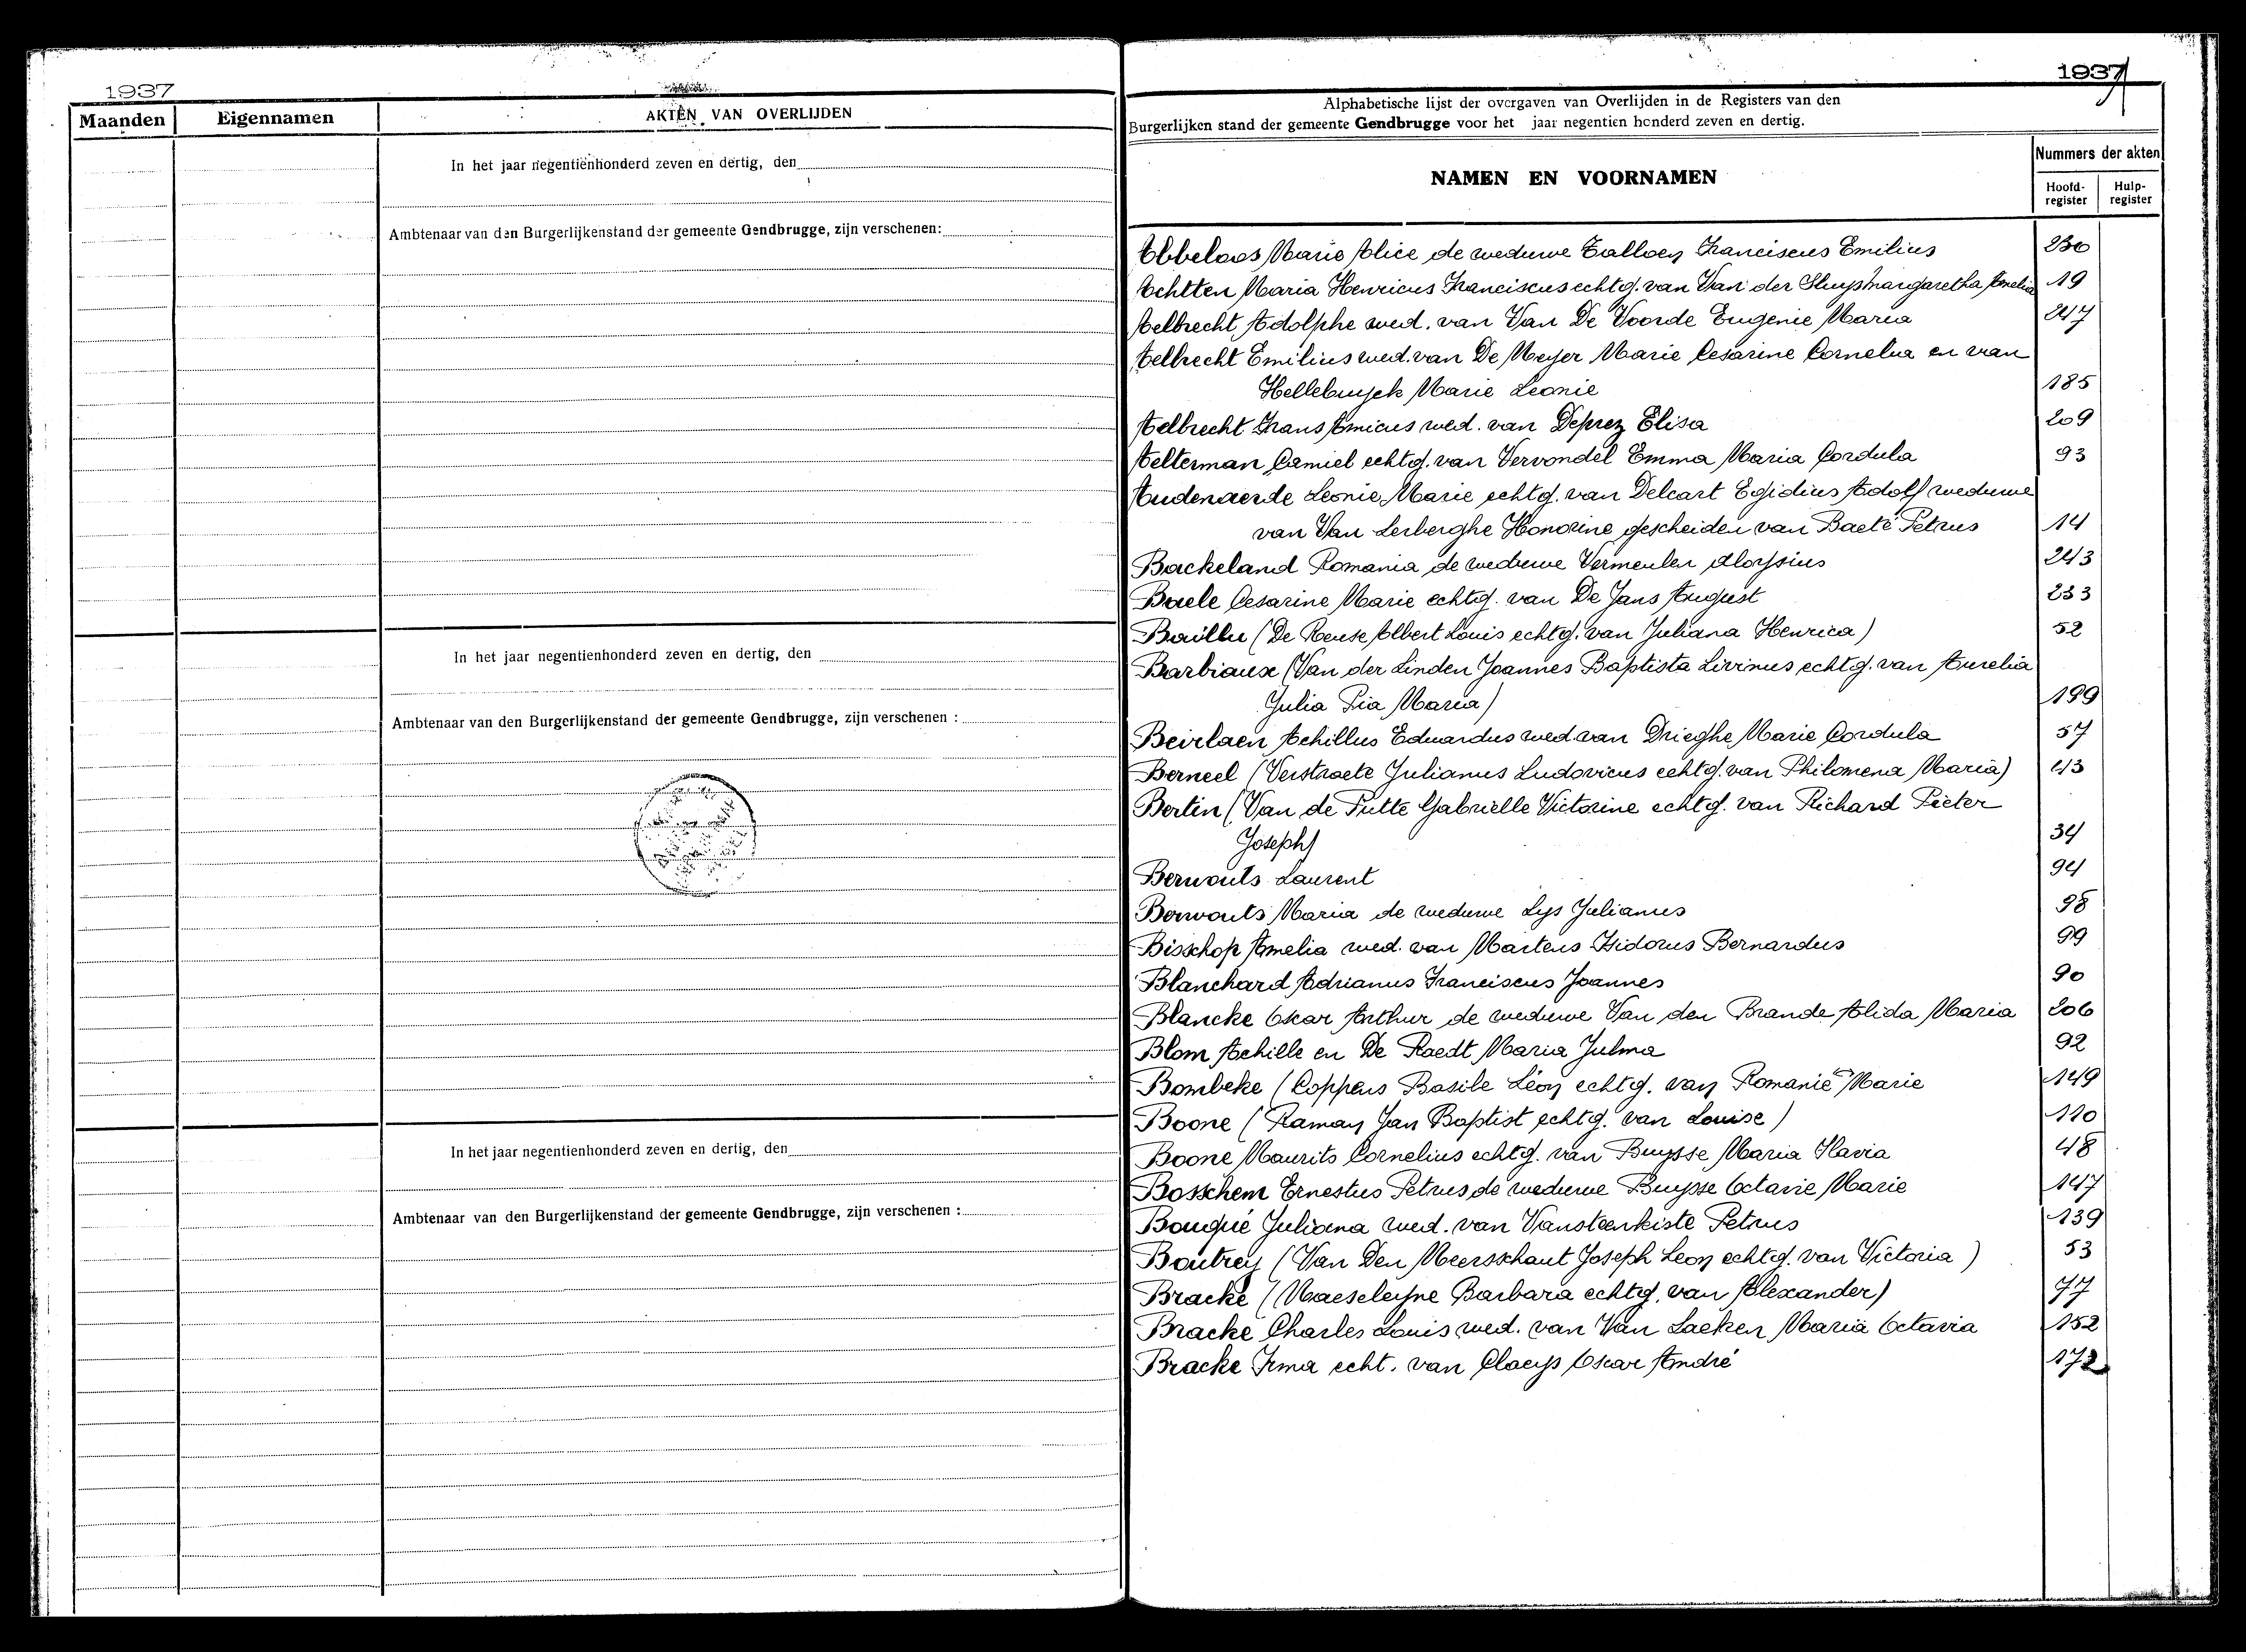 1937
Maanden Eigennamen AKTEN VAN OVERLIJDEN
In het jaar negentienhonderd zeven en dertig, den
Ambtenaar van den Burgerlijkenstand der gemeente Gendbrugge, zijn verschenen:
In het jaar negentienhonderd zeven en dertig, den
Ambtenaar van den Burgerlijkenstand der gemeente Gendbrugge, zijn verschenen :
In het jaar negentienhonderd zeven en dertig, den
Ambtenaar van den Burgerlijkenstand der gemeente Gendbrugge, zijn verschenen :
1937
Alphabetische lijst der overgaven van Overlijden in de Registers van den
Burgerlijken stand der gemeente Gendbrugge voor het jaar negentien honderd zeven en dertig.
NAMEN EN VOORNAMEN
Nummers der akten
Hoofd-register Hulp-register
Abbeloos Marie Alice de weduwe Talloen Franciscus Emilius 230
Achtten Maria Henricus Franciscus echtg. van Van der Sluys Margaretha Amelia 19
Aelbrecht Adolphe wed. van Van De Voorde Eugenie Maria 217
Aelbrecht Emilius wed. van De Meyer Marie Cesarine Cornelia en van
Hellebuyck Marie Leonie 185
Aelbrecht Frans Amicus wed. van Deprez Elisa 209
Aelterman Camiel echtg. van Vervondel Emma Maria Cordula 93
Audenaerde Leonie Marie echtg. van Delcart Egidius Adolf weduwe
van Van Lerberghe Honorine gescheiden van Baeté Petrus 14
Backeland Romania de weduwe Vermeulen Aloysius 243
Baele Cesarine Marie echtg. van De Jans August 233
Baillu (De Reuse Albert Louis echtg. van Juliana Henrica) 52
Barbiaux (Van der Linden Joannes Baptista Livinus echtg. van Aurelia
Julia Pia Maria) 199
Beirlaen Achillus Eduardus wed. van Drieghe Marie Cordula 57
Berneel (Verstraete Julianus Ludovicus echtg. van Philomena Maria) 43
Bertin (Van de Putte Gabrielle Victorine echtg. van Richard Pieter
Joseph) 34
Berwouts Laurent 94
Berwouts Maria de weduwe Lys Julianus 98
Bisschop Amelia wed. van Martens Isidorus Bernardus 99
Blanchard Adrianus Franciscus Joannes 90
Blancke Oscar Arthur de weduwe Van den Brande Alida Maria 206
Blom Achille en De Raedt Maria Julma 92
Bombeke (Coppens Basile Léon echtg. van Romanie Marie 149
Boone (Raman Jan Baptist echtg. van Louise) 110
Boone Maurits Cornelius echtg. van Buysse Maria Flavia 48
Bosschem Ernestus Petrus de weduwe Buysse Octavie Marie 147
Bouqué Juliana wed. van Vansteenkiste Petrus 139
Boutrey (Van Den Meersschaut Joseph Leon echtg. van Victoria) 53
Bracke (Maeseleyne Barbara echtg. van Alexander) 77
Bracke Charles Louis wed. van Van Laeken Maria Octavia 152
Bracke Irma echt. van Claeys Oscar André 172